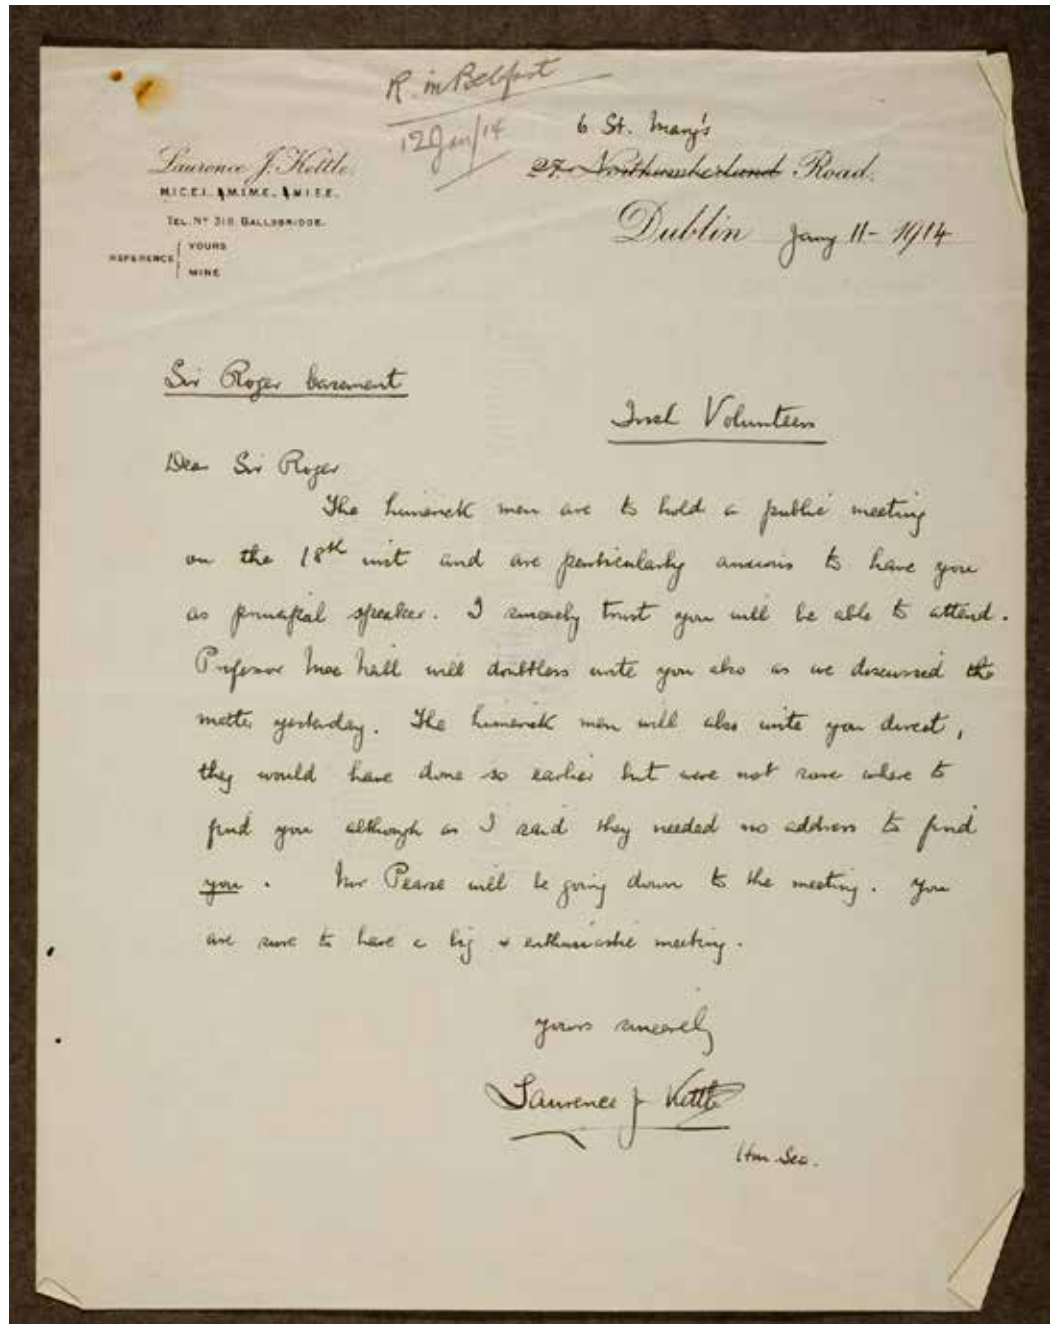 R. in Belfast
12 Jan/14
Laurence J. Kettle.
M.I.C.E.I. A.M.I.M.E. A.M.I.E.E.
TEL. Nº 318 BALLSBRIDGE.
REFERENCE { YOURS
MINE
6 St. Mary's
27. Northumberland Road.
Dublin Jany 11 - 1914
Sir Roger Casement
Irish Volunteers
Dear Sir Roger
The Limerick men are to hold a public meeting
on the 18th inst and are particularly anxious to have you
as principal speaker. I sincerely trust you will be able to attend.
Professor MacNeill will doubtless write you also as we discussed the
matter yesterday. The Limerick men will also write you direct,
they would have done so earlier but were not sure where to
find you although as I said they needed no address to find
you. Mr Pearse will be going down to the meeting. You
are sure to have a big & enthusiastic meeting.
yours sincerely
Laurence J Kettle
Hon. Sec.